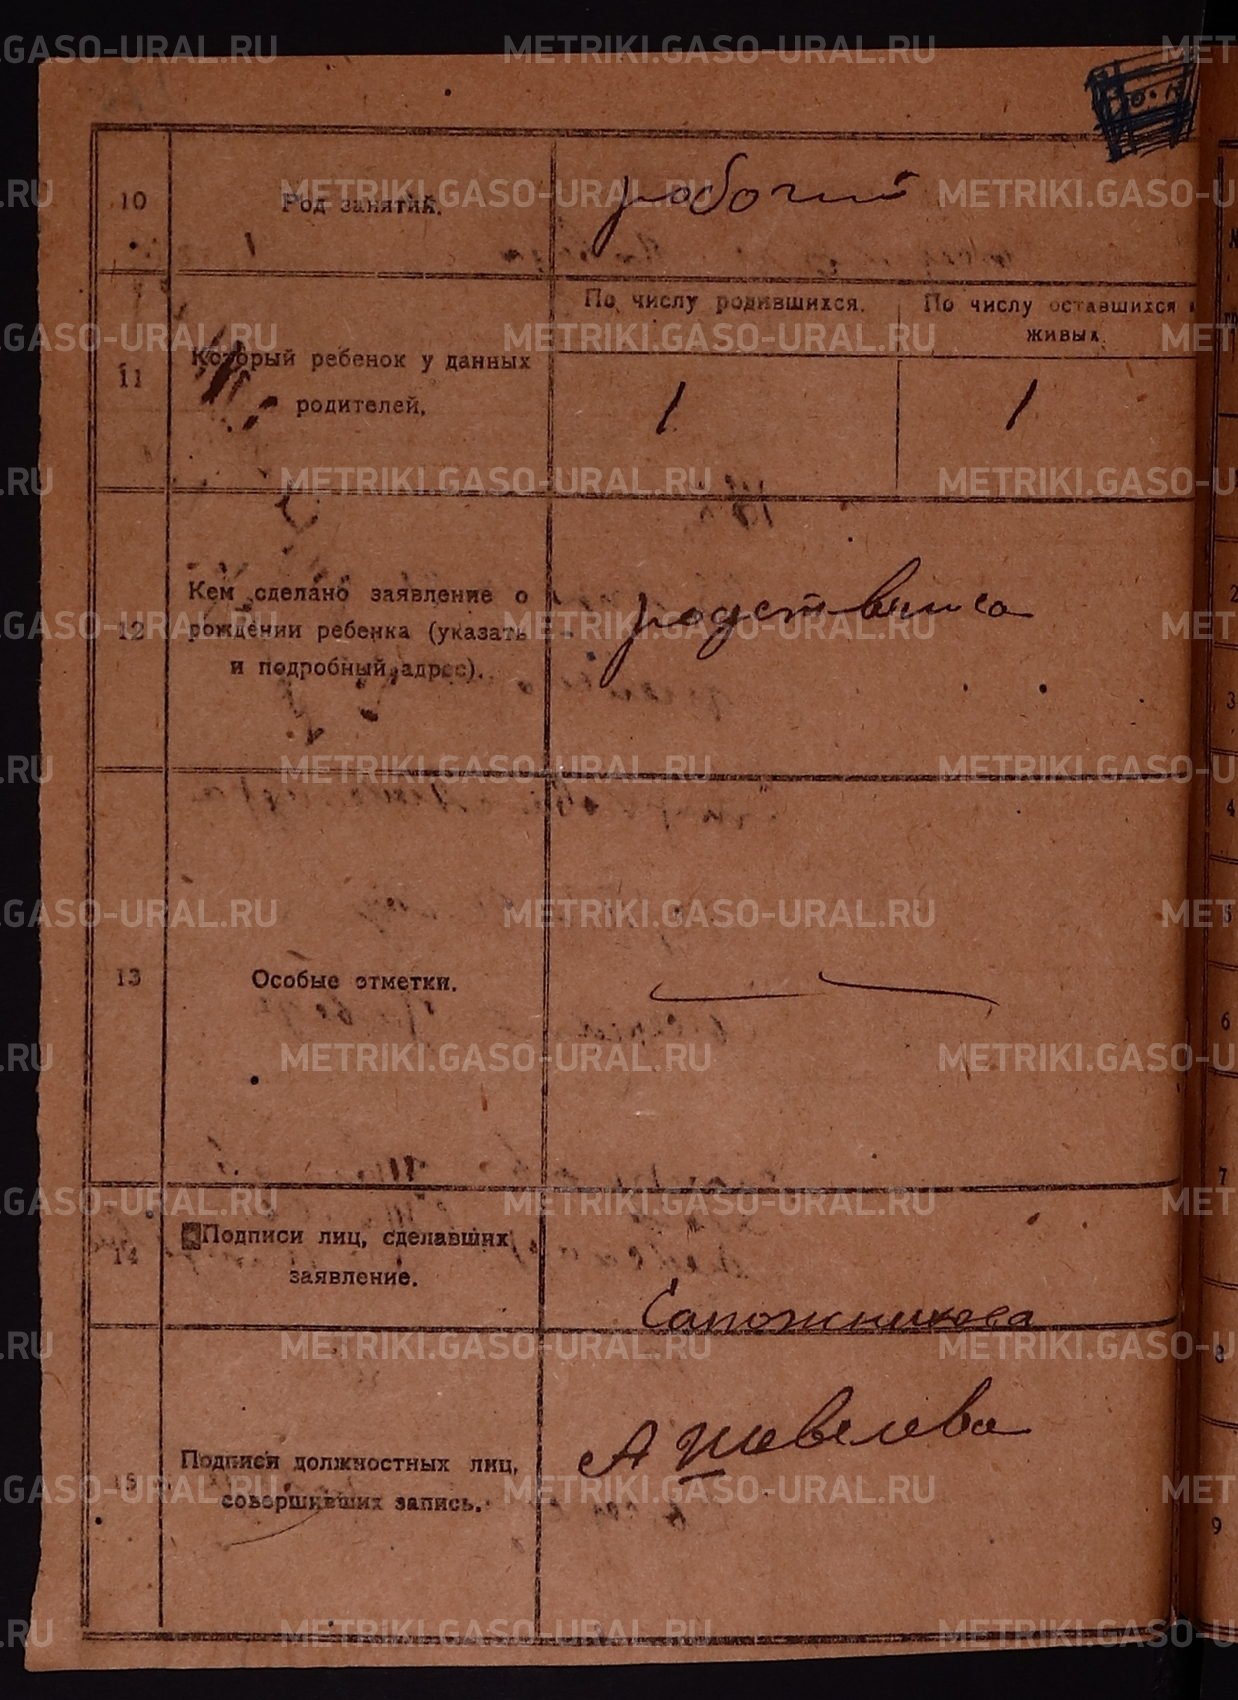 METRIKI.GASO-URAL.RU
10
Род занятий.
рабочий
11
Который ребенок у данных
родителей,
По числу родившихся.
По числу оставшихся в
живых.
1
1
12
Кем сделано заявление о
рождении ребенка (указать
и подробный адрес).
13
Особые отметки.
14
Подписи лиц, сделавших
заявление.
Сапожникова
15
Подписи должностных лиц,
совершивших запись.
А Шевелева
2
3
4
5
6
7
8
9